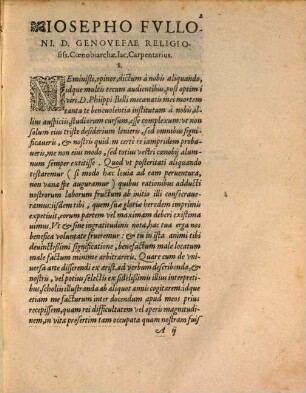 2
IOSEPHO FVLLO-
NI. D. GENOVEFAE RELIGIO-
siss. Cœnobiarchæ. Iac. Carpentarius.
S.
MEministi, opinor, dictum à nobis aliquando,
idque multis tecum audientibus, post optimi
viri. D. Philippi Belli mecœnatis mei mortem
tanta te beneuolentia institutum à nobis, al-
tius auspiciis, studiorum cursum, esse complexum: vt non
solum eius triste desiderium lenieris, sed omnibus signi-
ficaueris, & nostra quid in certè te iampridem proba-
uem, & me non modo eius, sed totius vestri cœnobij alum-
num semper extitisse. Quod vt posteritati aliquando
testaremur (si modo hæc leuia ad eam peruentura,
non vana spe auguramur) quibus rationibus adducti
nostrorum laborum fructum ab initio illi consecraue-
ramus: iisdem tibi, quem suæ gloriæ heredem imprimis
expetiuit, eorum partem vel maximam deberi existima-
uimus. Vt & sine ingratitudinis nota, tua erga nos
benefica voluntate frueremur: & te etiam animi tibi
deuinctissimi significatione, benefactum male locatum
male factum minime arbitrareris. Quare cum de vni-
uersa arte disserendi ex Arist. ad verbum describenda, &
nostris, vel potius selectis ex fidelissimis illius interpreti-
bus, scholiis illustranda ab aliquot annis cogitarem: idque
etiam me facturum inter docendum apud meos prius
recepissem, quam rei difficultatem vel operis magnitudi-
nem, in vita præsertim tam occupata quam nostram fuis
A ij